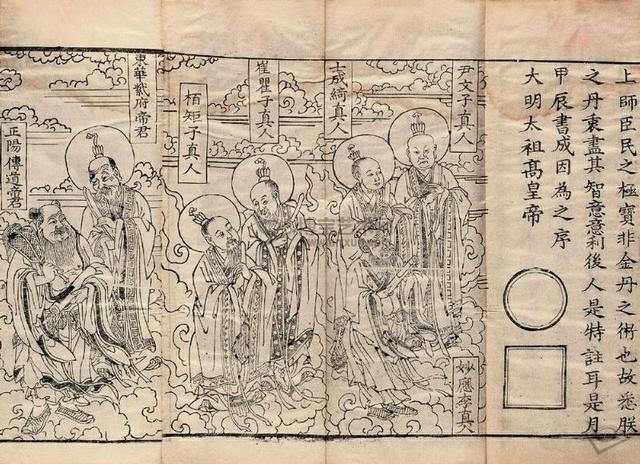 上師臣民之極寶非金丹之術也故悉朕
之丹衷盡其智意意利後人是特註耳是月
甲辰書成因為之序
大明太祖高皇帝
尹文子真人
士成綺真人
崔瞿子真人
栢矩子真人
東華帝君
正陽傳道帝君
妙應真